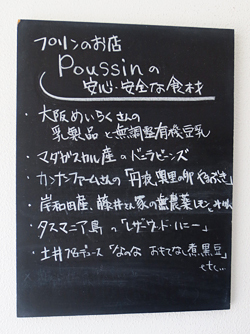 プリンのお店
Poussinの
安心・安全な食材
・大阪めいらくさんの
乳製品と無調整有機豆乳
・マダガスカル産のバニラビーンズ
・カンナンファームさんの「丹波 奥里の卵
・岸和田産、藤井さん家の無農薬レモン
・タスマニア島の「レザーウッド・ハニー」
・土井プロデュース「なのな おもてなし煮黒豆」
etc...